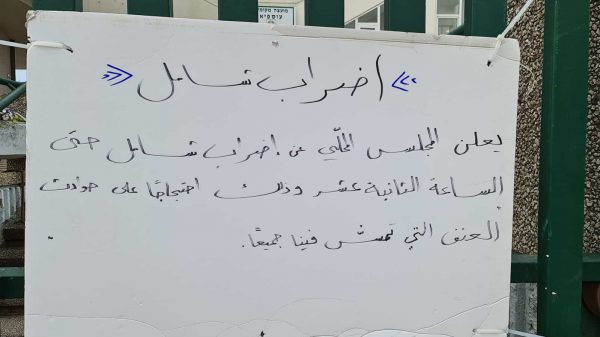 מועצה מקומית
עוספיא
»اضراب شامل«
يعلن المجلس المحلّي عن إضراب شامل حتى
الساعة الثانية عشر وذلك احتجاجًا على حوادث
العنف التي تمسّ فينا جميعًا.